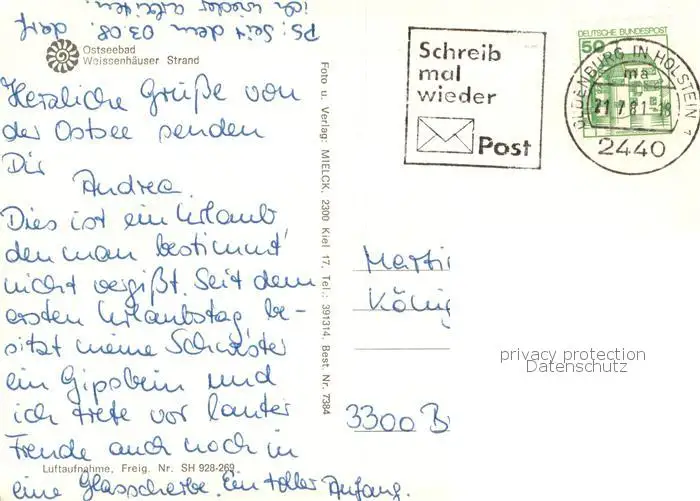 PS: Seit dem 03.08. darf
ich wieder arbeiten
Ostseebad
Weissenhäuser Strand
Herzliche Grüße von
der Ostsee senden
Dir
Andrea.
Dies ist ein Urlaub
den man bestimmt
nicht vergißt. Seit dem
ersten Urlaubstag be-
sitzt meine Schwester
ein Gipsbein und
ich trete vor lauter
Freude auch noch in
eine Glasscherbe. Ein toller Anfang.
Luftaufnahme, Freig. Nr. SH 928-269
Foto u. Verlag: MIELCK, 2300 Kiel 17, Tel.: 391314, Best. Nr. 7384
Schreib
mal
wieder
Post
DEUTSCHE BUNDESPOST
50
OLDENBURG IN HOLSTEIN 1
ma
21.7.81-18
2440
Marti
König
3300 B
privacy protection
Datenschutz